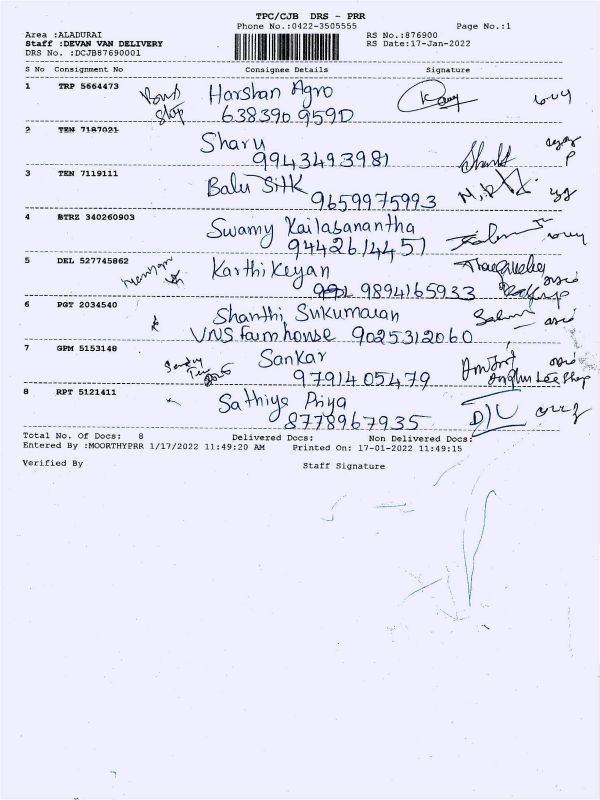 TPC/CJB DRS - PRR
Phone No.:0422-3505555 Page No.:1
Area :ALADURAI RS No.:876900
Staff :DEVAN VAN DELIVERY RS Date:17-Jan-2022
DRS No. :DCJB87690001
S No Consignment No Consignee Details Signature
1 TRP 5664473 Harshan Agro
638390 9590
2 TEN 7187021 Sharu
9943493981
3 TEN 7119111 Balu Sitk
9659975993
4 BTRZ 340260903 Swamy Kailasanantha
9442614451
5 DEL 527745862 Karthikeyan
9894165933
6 PGT 2034540 Shanthi Sukumaran
VNS farm house 9025312060
7 GPM 5153148 Sankar
9791405479
8 RPT 5121411 Sathiya Priya
8778967935
Total No. Of Docs: 8 Delivered Docs: Non Delivered Docs:
Entered By :MOORTHYPRR 1/17/2022 11:49:20 AM Printed On: 17-01-2022 11:49:15
Verified By Staff Signature